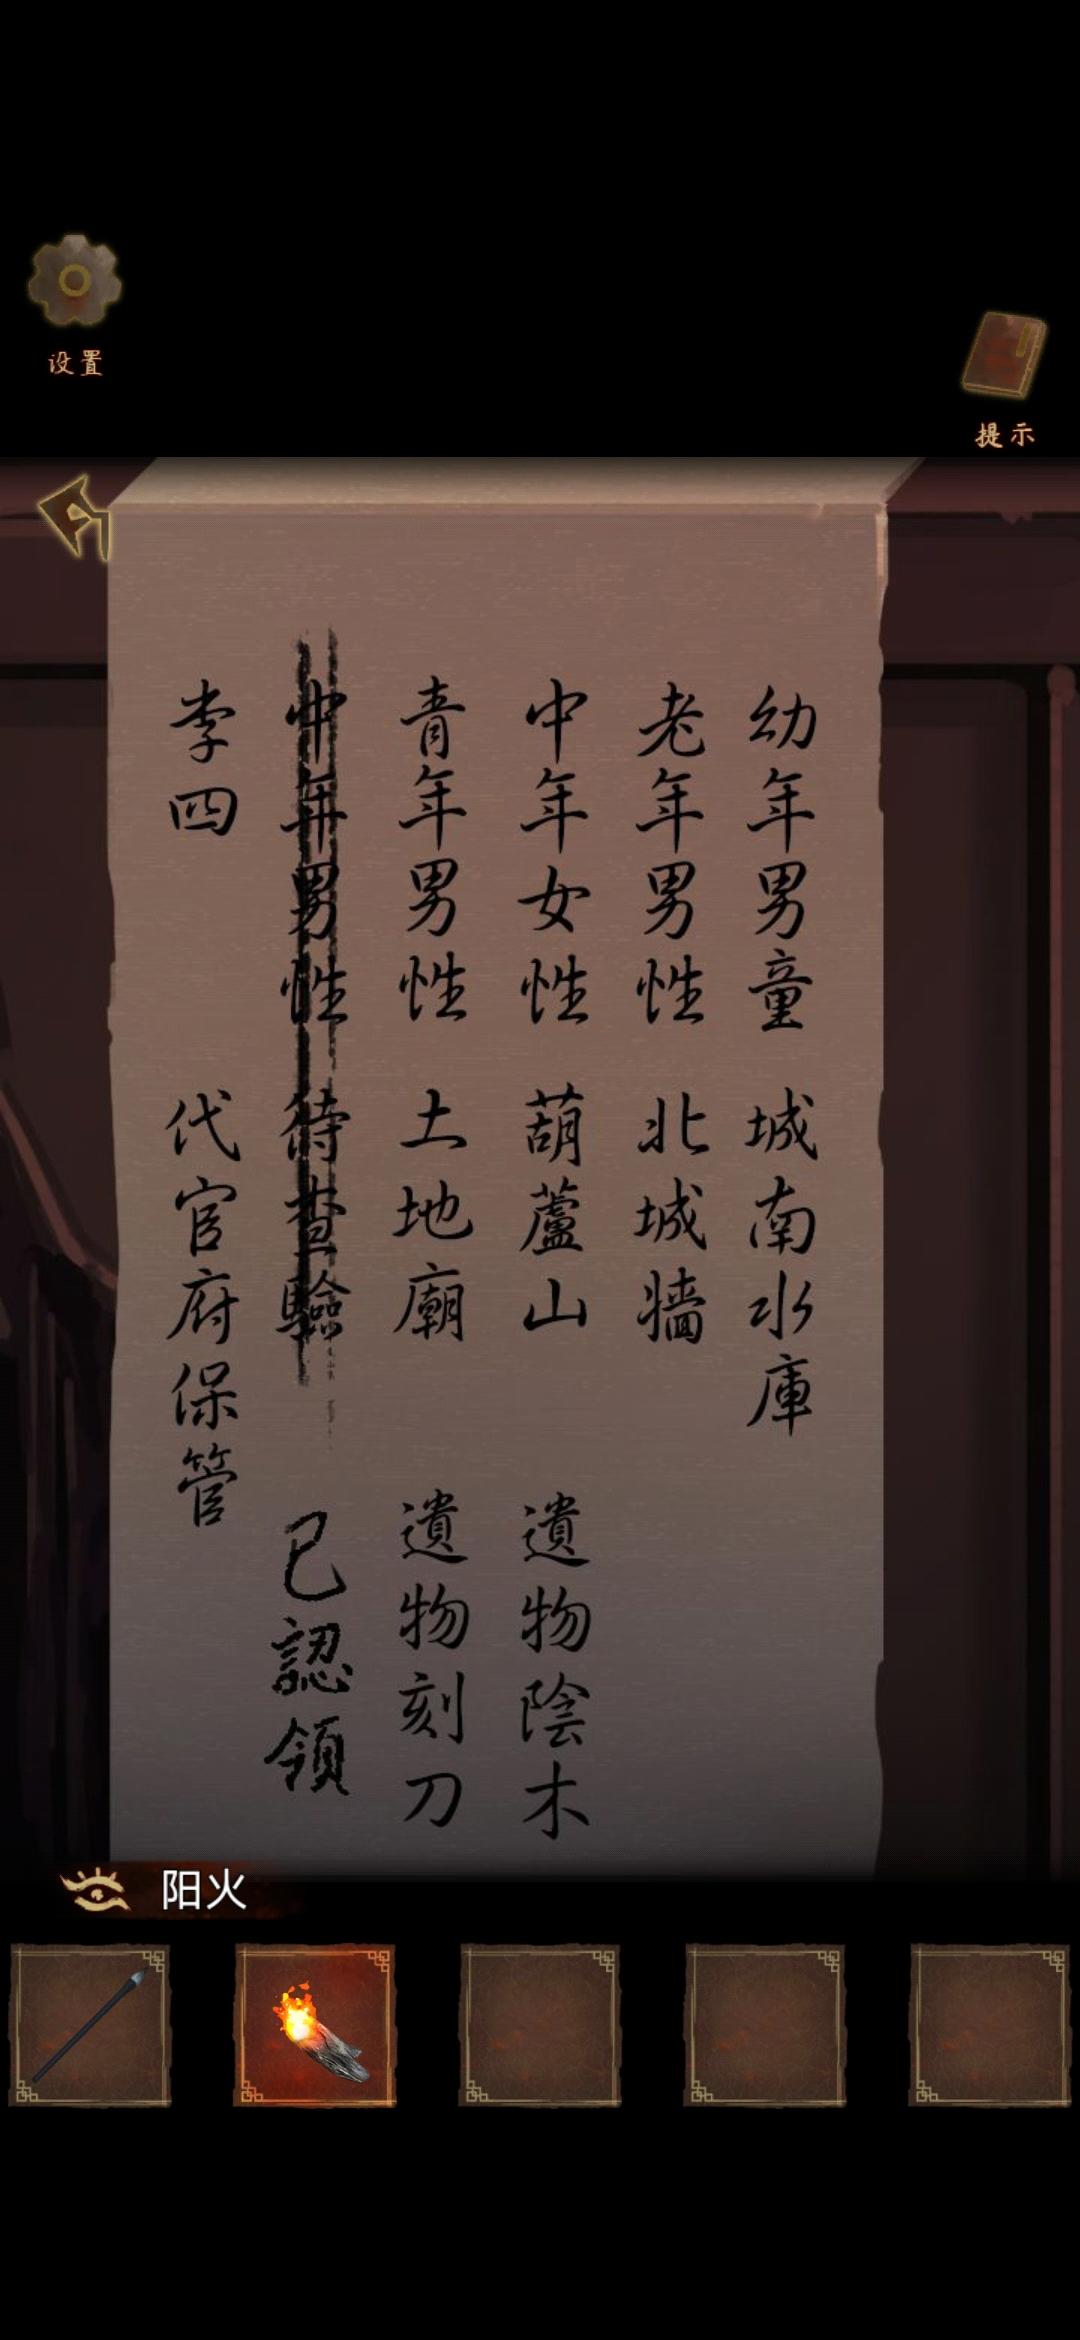 设置
提示
幼年男童 城南水庫
老年男性 北城牆
中年女性 葫蘆山 遺物陰木
青年男性 土地廟 遺物刻刀
中年男性 待查驗 已認領
李四 代官府保管
阳火